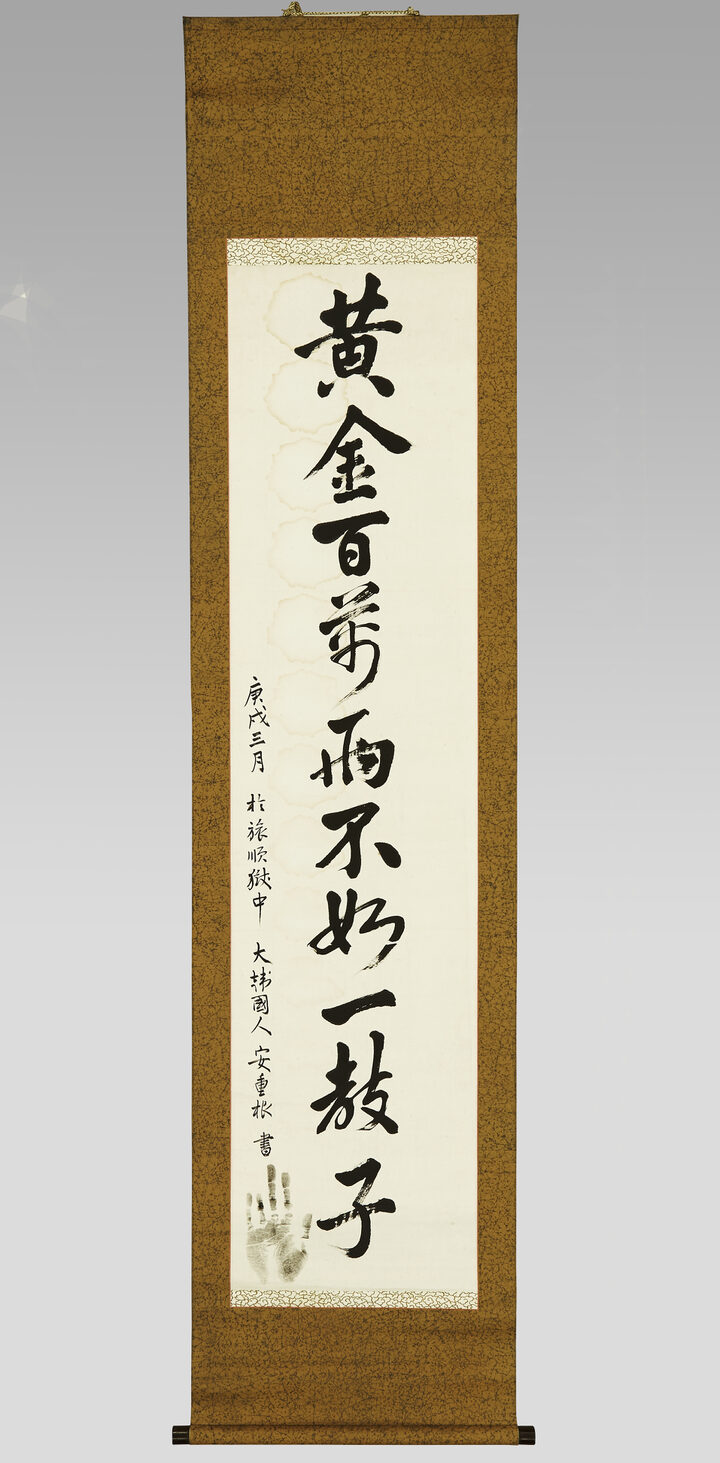 黃金百萬兩不如一敎子
庚戌三月 於旅順獄中 大韓國人 安重根 書